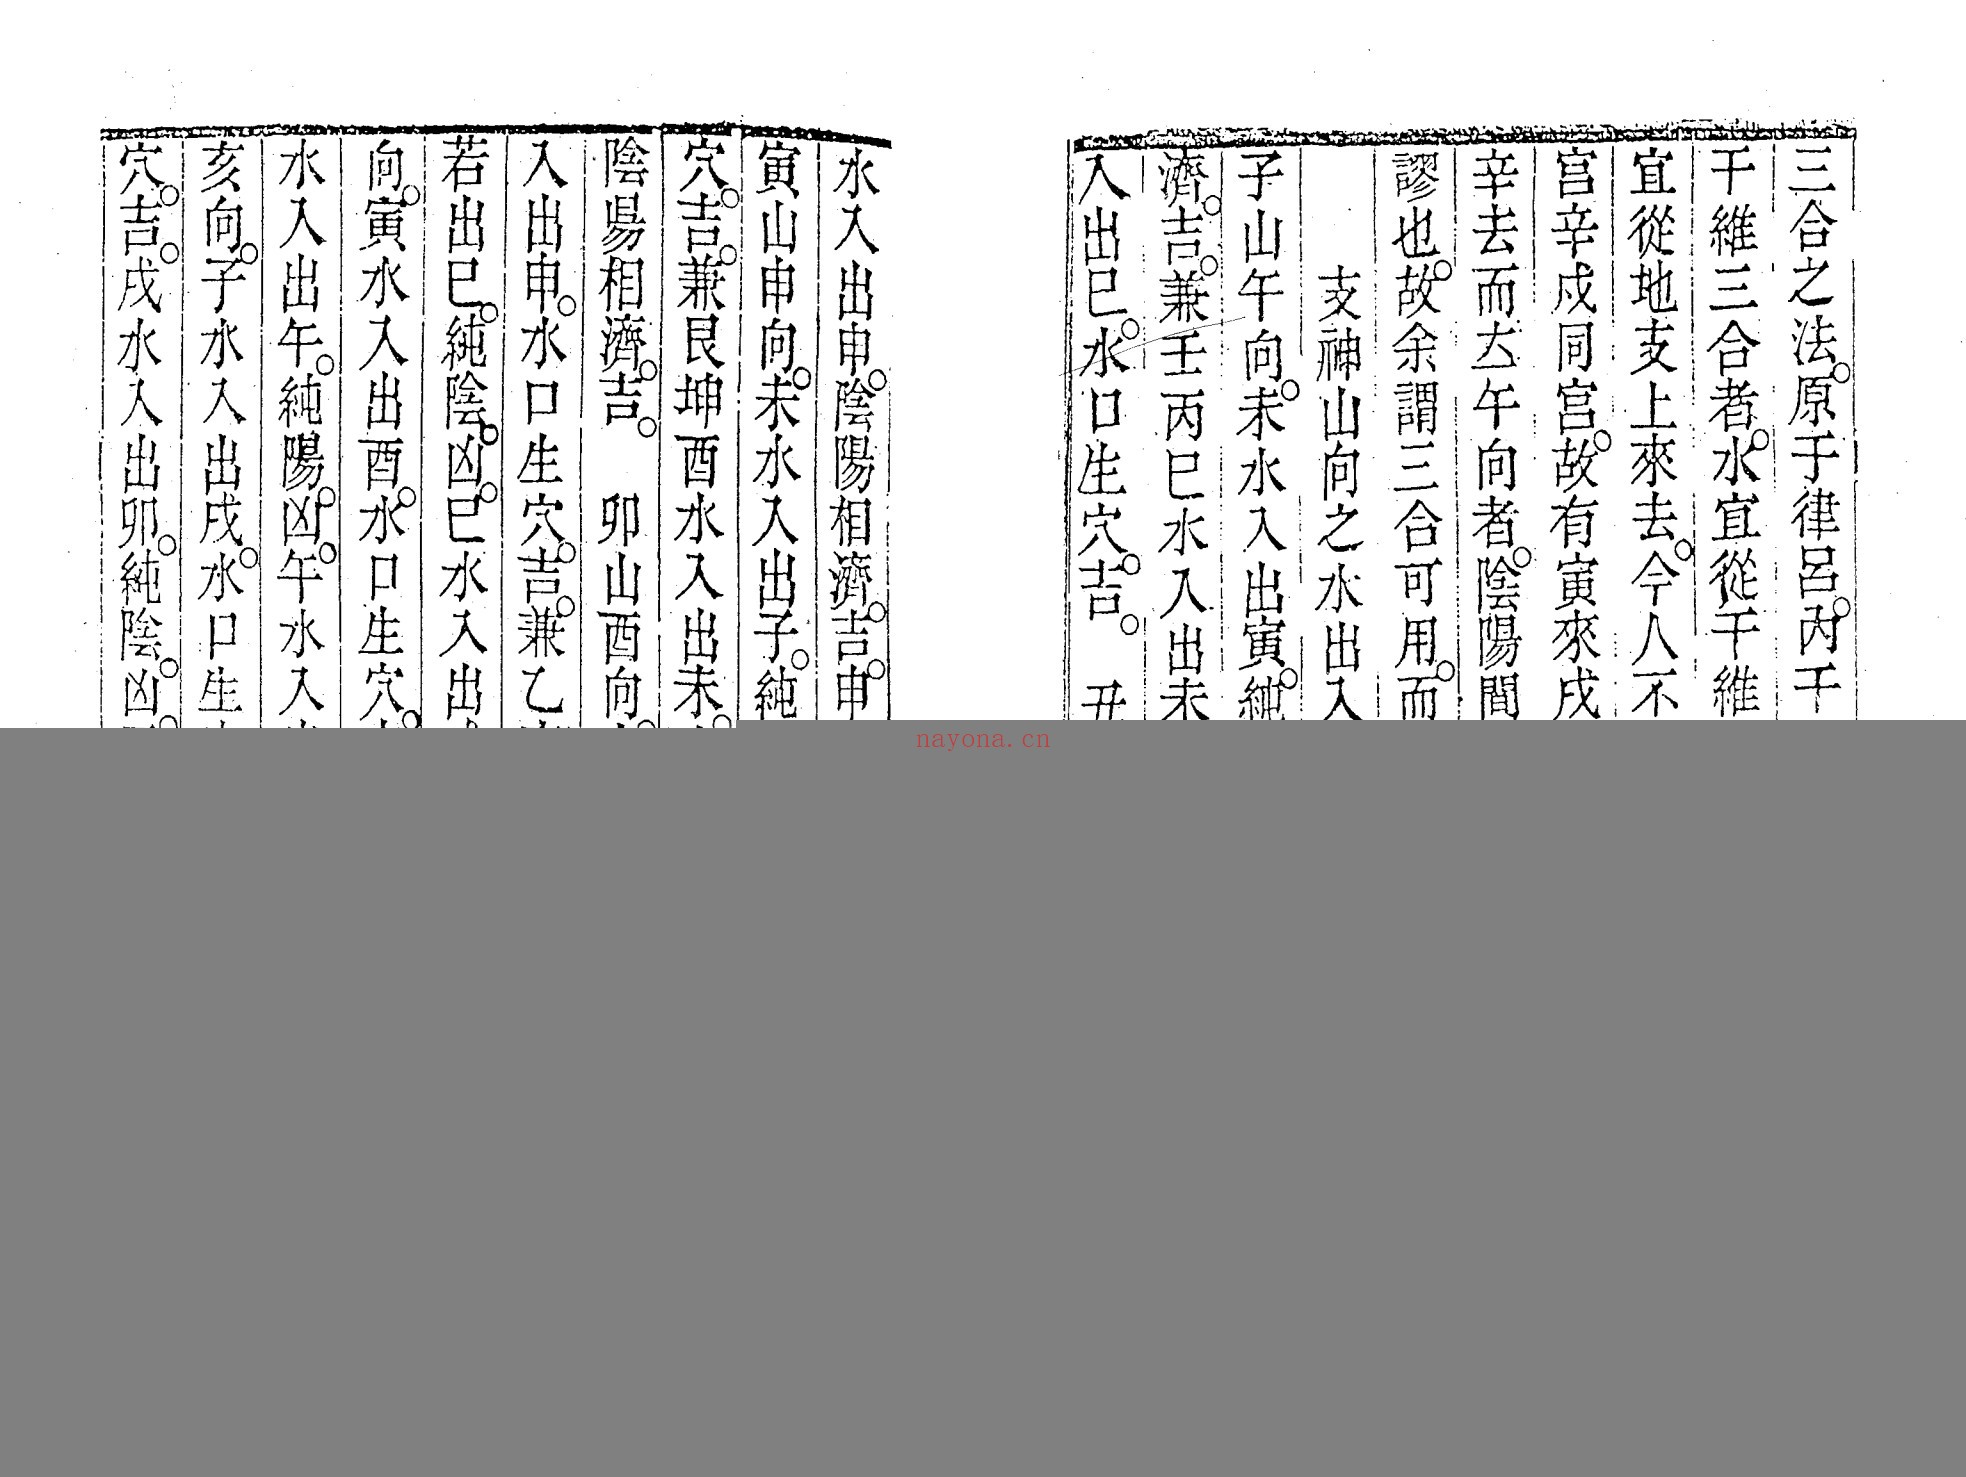 三合之法。原于律呂。內干
干維三合者。水宜從干維
宜從地支上來去。今人不
宮辛戍同宮。故有寅來戌
辛去而去午向者。陰陽間
謬也。故余謂三合可用。而
支神山向之水出入
子山午向。未水入出寅。純
濟。吉。兼壬丙巳水入出未
入出巳。水口生穴。吉。 丑
水入出申。陰陽相濟。吉。申
寅山申向。未水入出子。純
穴。吉。兼艮坤酉水入出未
陰陽相濟。吉。 卯山酉向
入出申。水口生穴。吉。兼乙
若出巳。純陰。凶。巳水入出
向。寅水入出酉。水口生穴
水入出午。純陽。凶。午水入
亥向。子水入出戌。水口生
穴。吉。戌水入出卯。純陰。凶
nayona.cn